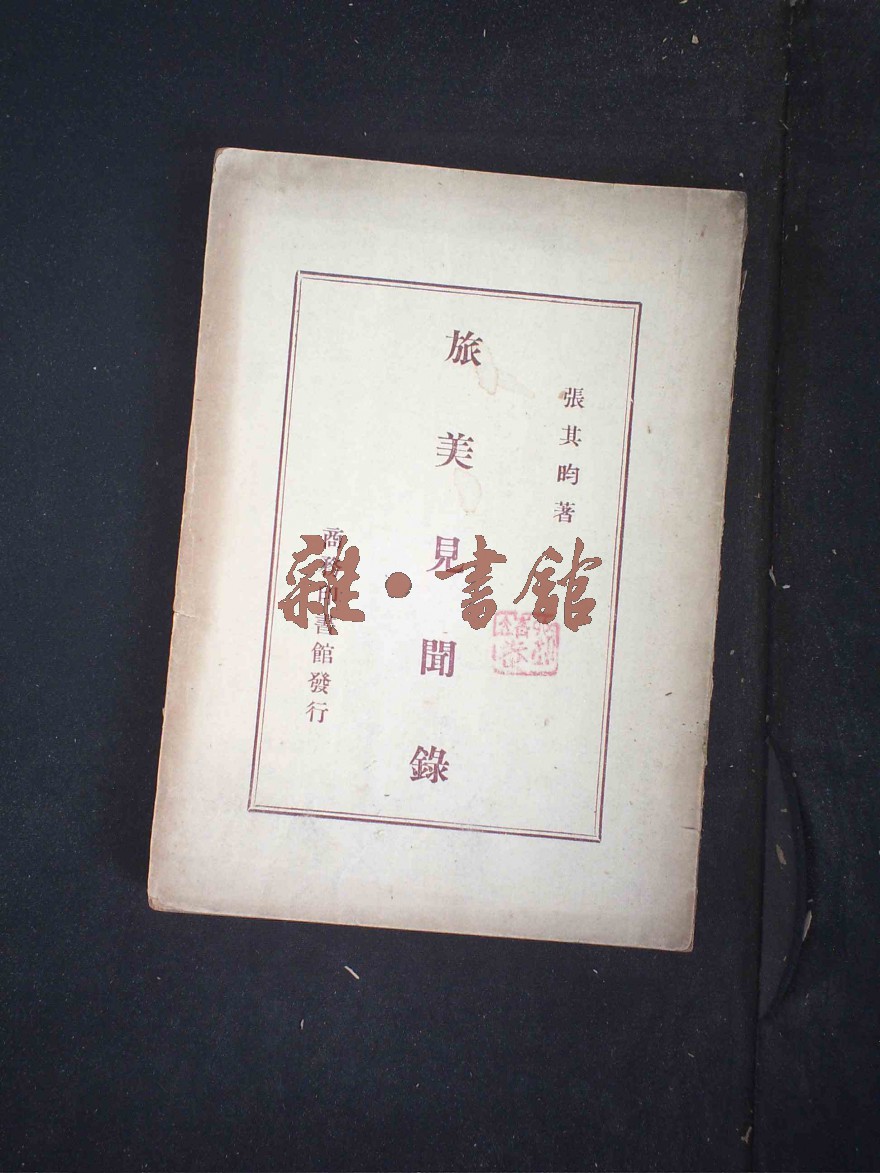 張其昀著
旅美見聞錄
商務印書館發行
雜·書館